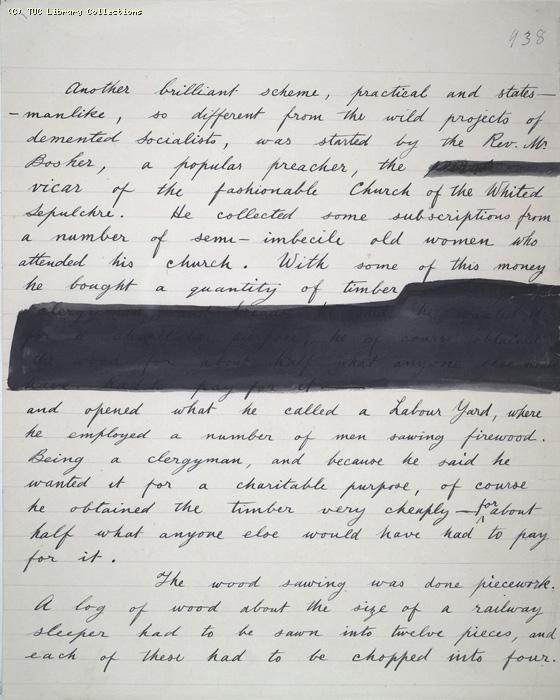 (C) TUC Library Collections
938
Another brilliant scheme, practical and states-
-manlike, so different from the wild projects of
demented Socialists, was started by the Rev. Mr
Bosher, a popular preacher, the
vicar of the fashionable Church of the Whited
Sepulchre. He collected some subscriptions from
a number of semi-imbecile old women who
attended his church. With some of this money
he bought a quantity of timber
for a charitable purpose, he of course obtained
for about half what anyone else
have had to pay for it
and opened what he called a Labour Yard, where
he employed a number of men sawing firewood.
Being a clergyman, and because he said he
wanted it for a charitable purpose, of course
he obtained the timber very cheaply - for about
half what anyone else would have had to pay
for it.
The wood sawing was done piecework.
A log of wood about the size of a railway
sleeper had to be sawn into twelve pieces, and
each of these had to be chopped into four.